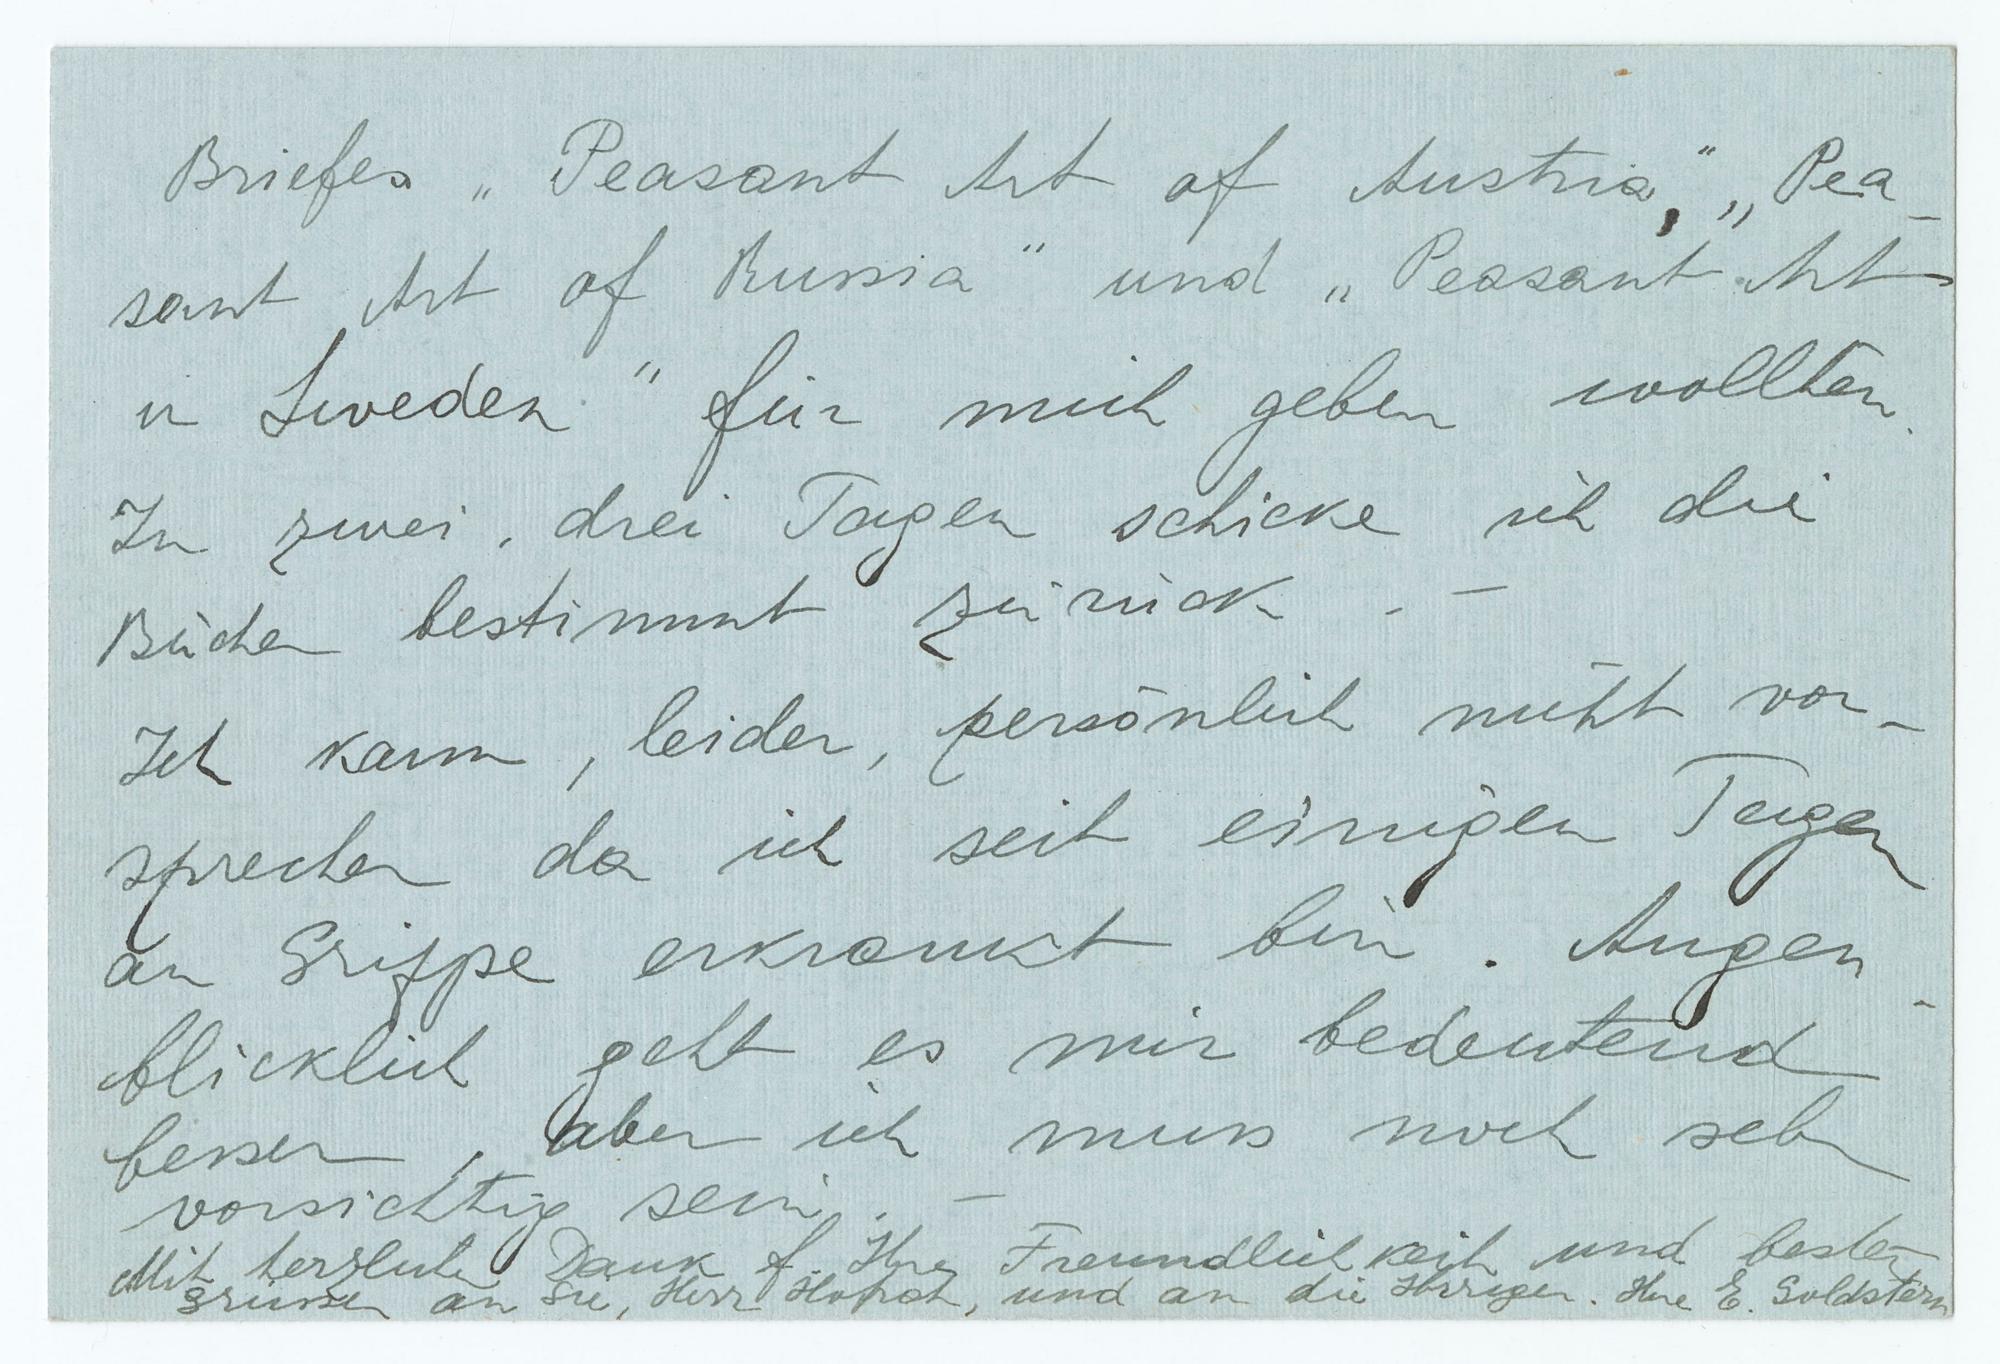 Briefes „Peasant Art of Austria," „Pea-
sant Art of Russia" und „Peasant Art
in Sweden" für mich geben wollten.
In zwei, drei Tagen schicke ich die
Bücher bestimmt zurück. –
Ich kann, leider, persönlich nicht vor-
sprechen da ich seit einigen Tagen
an Grippe erkrankt bin. Augen-
blicklich geht es mir bedeutend
besser, aber ich muss noch sehr
vorsichtig sein. –
Mit herzlichen Dank f. Ihre Freundlichkeit und besten
Grüssen an Sie, Herr Hofrat, und an die Ihrigen. Ihre E. Goldstern